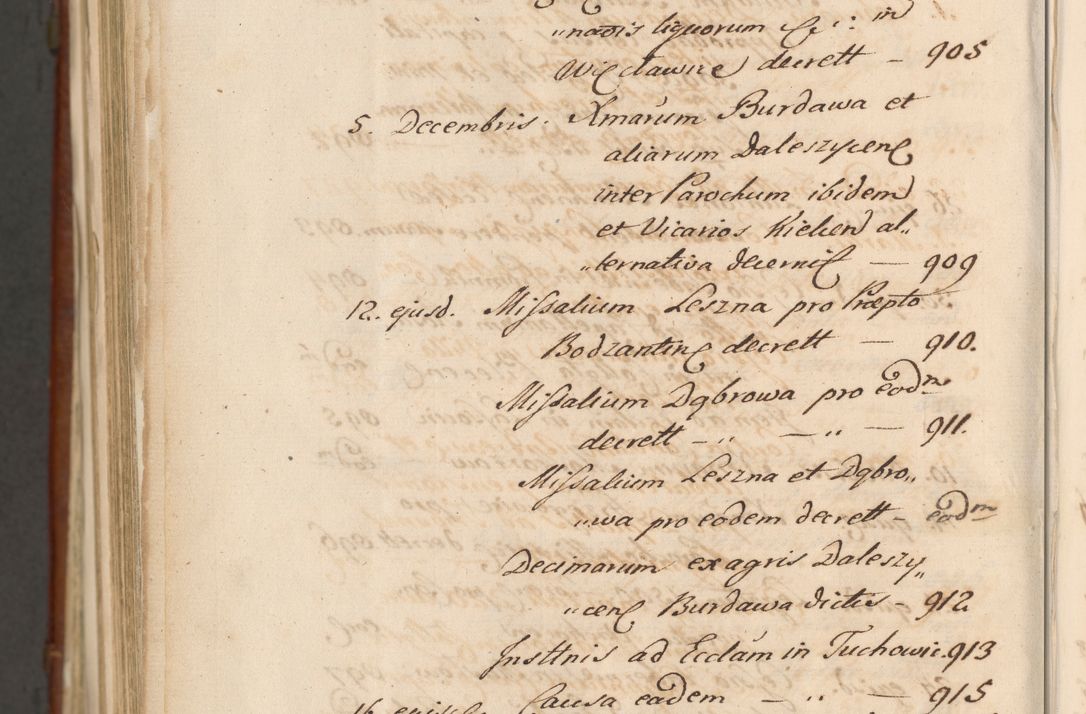 „natõis liquorum &c: in
Więcławice decrett – 905
5. Decembris. Xmarum Burdawa et
aliarum Daleszycen̄
inter Parochum ibidem
et Vicarios Kielcen̄ al„
„ternativa decernit — 909
12. ejusd. Missalium Leszna pro Præpto
Bodzantinẽ decrett — 910.
Missalium Dąbrowa pro eodm̃
decrett – „ — „ — 911.
Missalium Leszna et Dąbro„
„wa pro eodem decrett – eodm̃
Decimarum ex agris Daleszy„
„cen̄ Burdawa dictis – 912
Insttnis ad Ecclãm in Tuchowie. 913
Causa eadem — „ — 915
16. ejusd